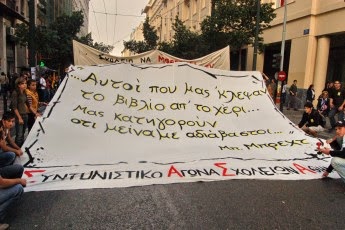 ΣΧΟΛΕΙΑ ΝΑ
"Αυτοί που μας 'κλεψαν
το βιβλίο απ' το χέρι...
μας κατηγορούν
ότι μείναμε αδιάβαστοι..."
Μπ. Μπρεχτ
ΣΥΝΤΟΝΙΣΤΙΚΟ ΑΓΩΝΑ ΣΧΟΛΕΙΩΝ